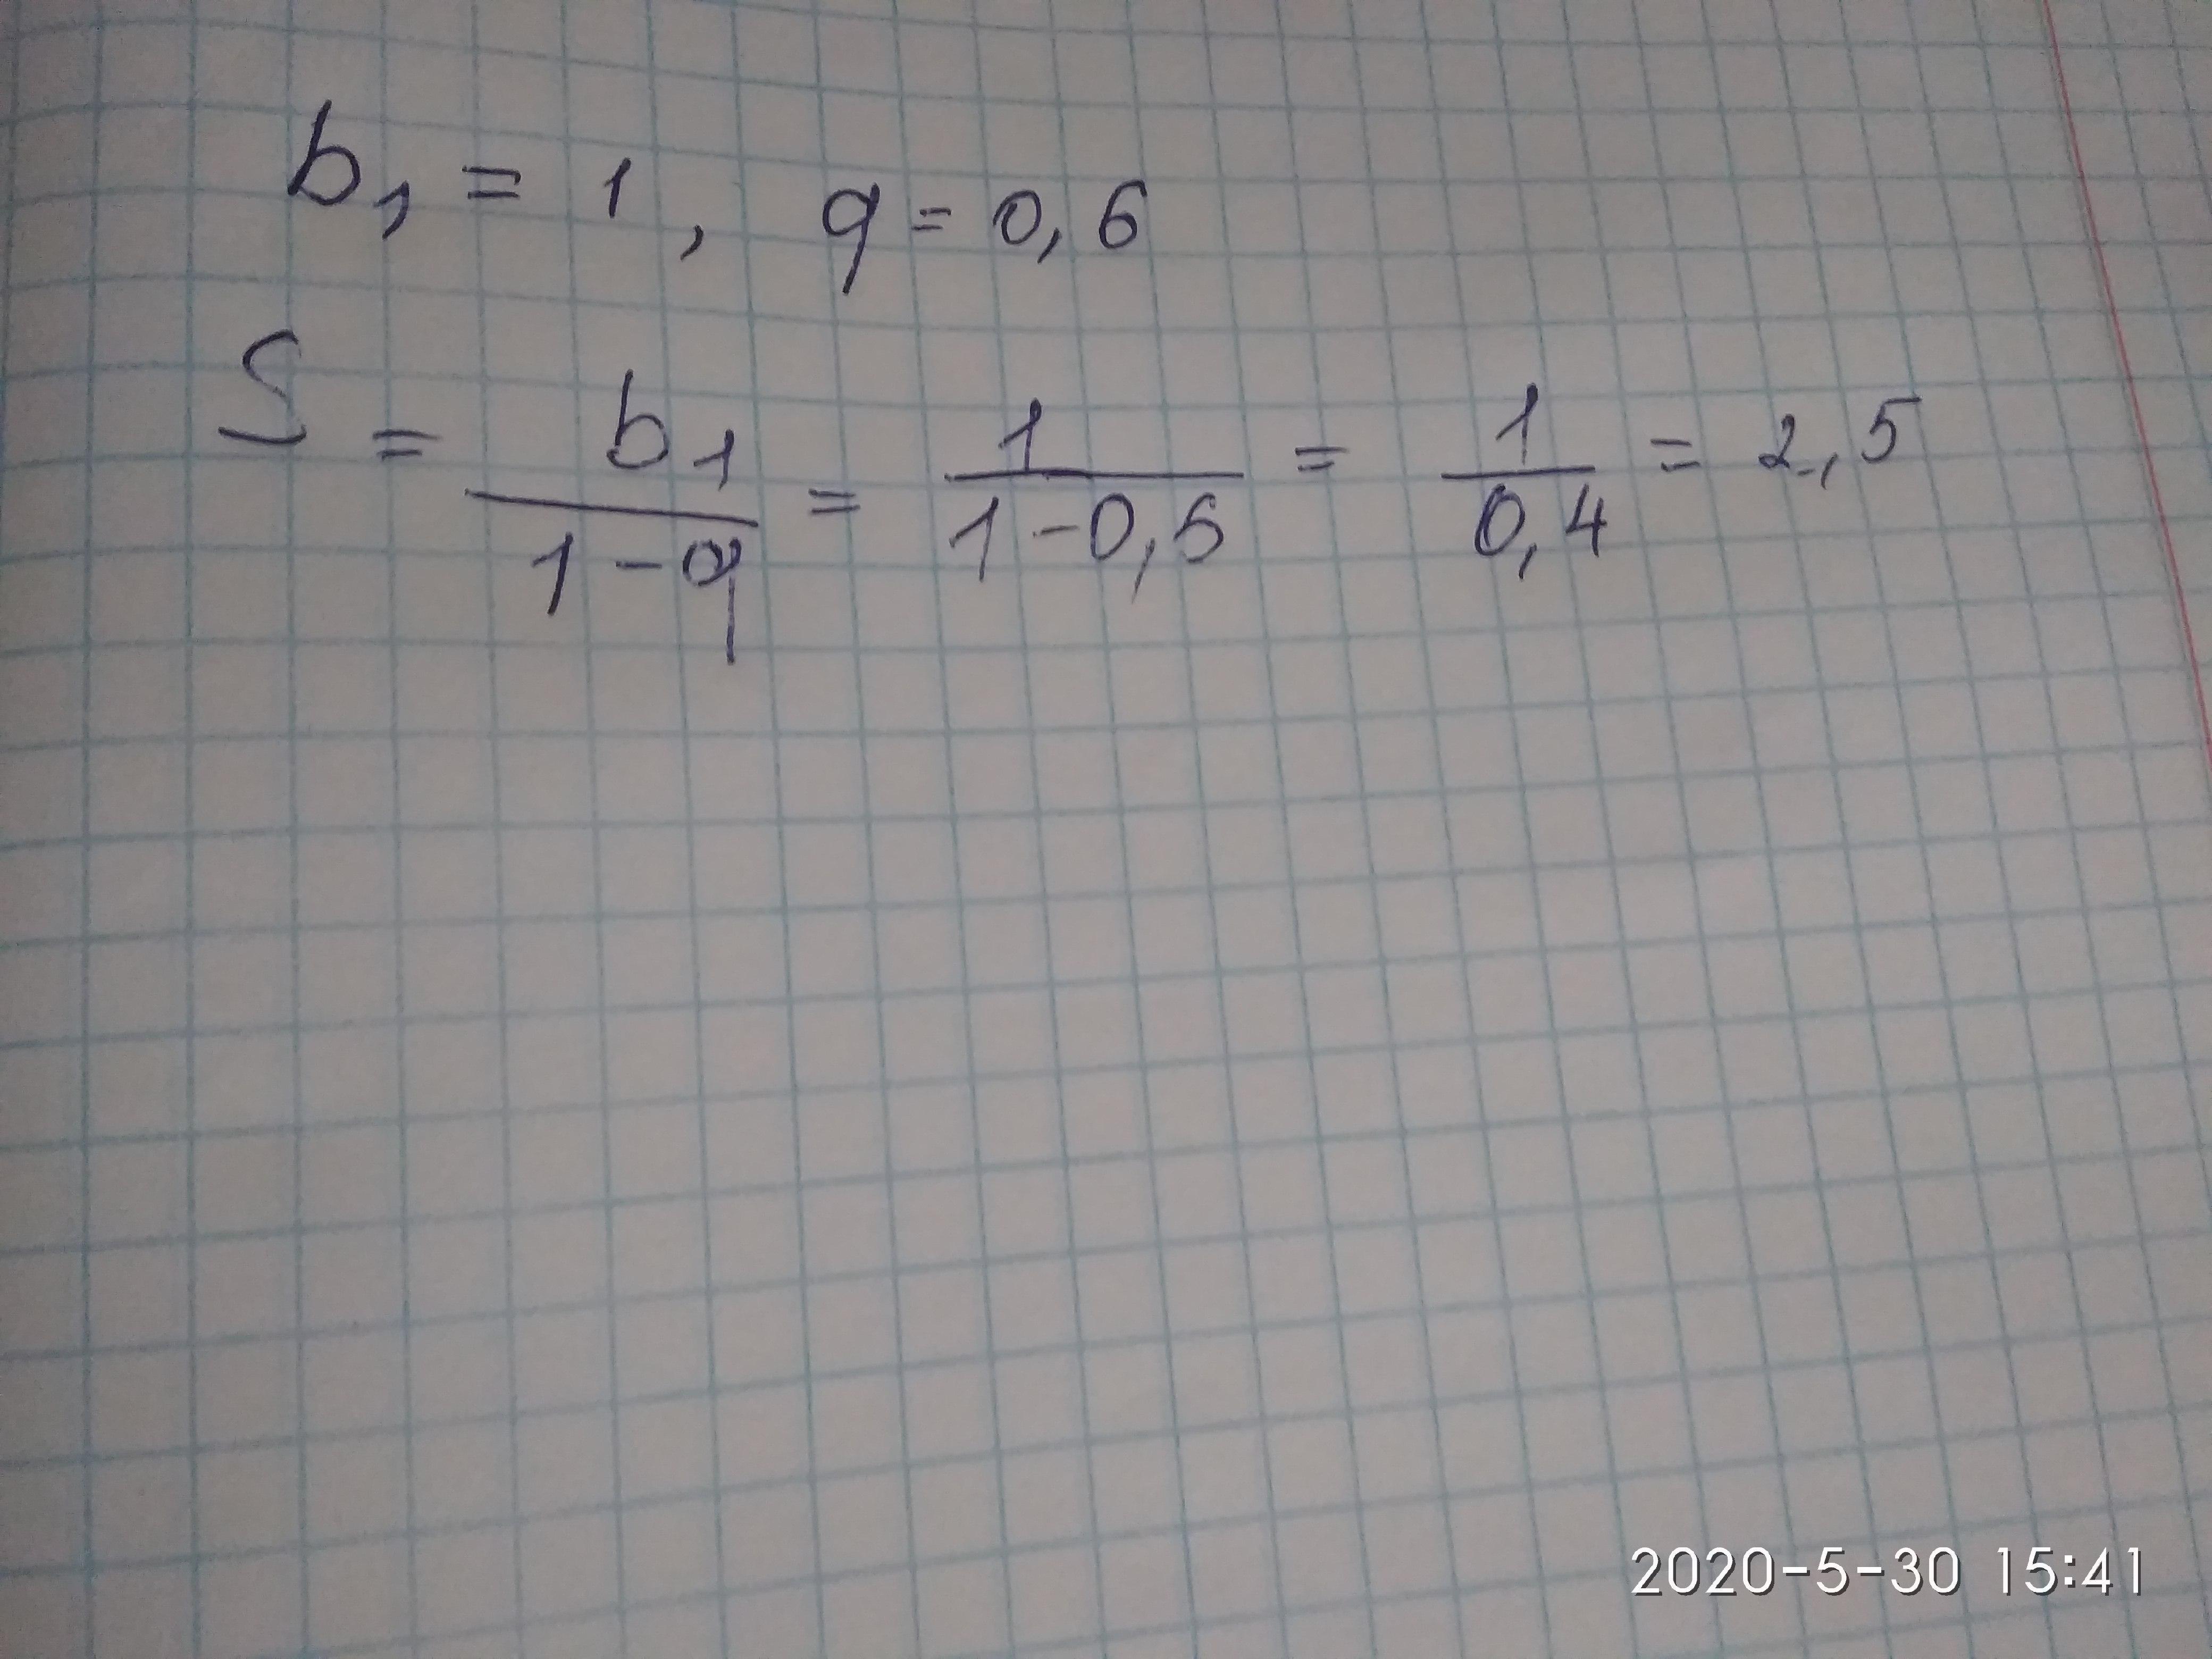 b₁ = 1, q = 0,6
S = b₁/(1-q) = 1/(1-0,6) = 1/0,4 = 2,5
2020-5-30 15:41